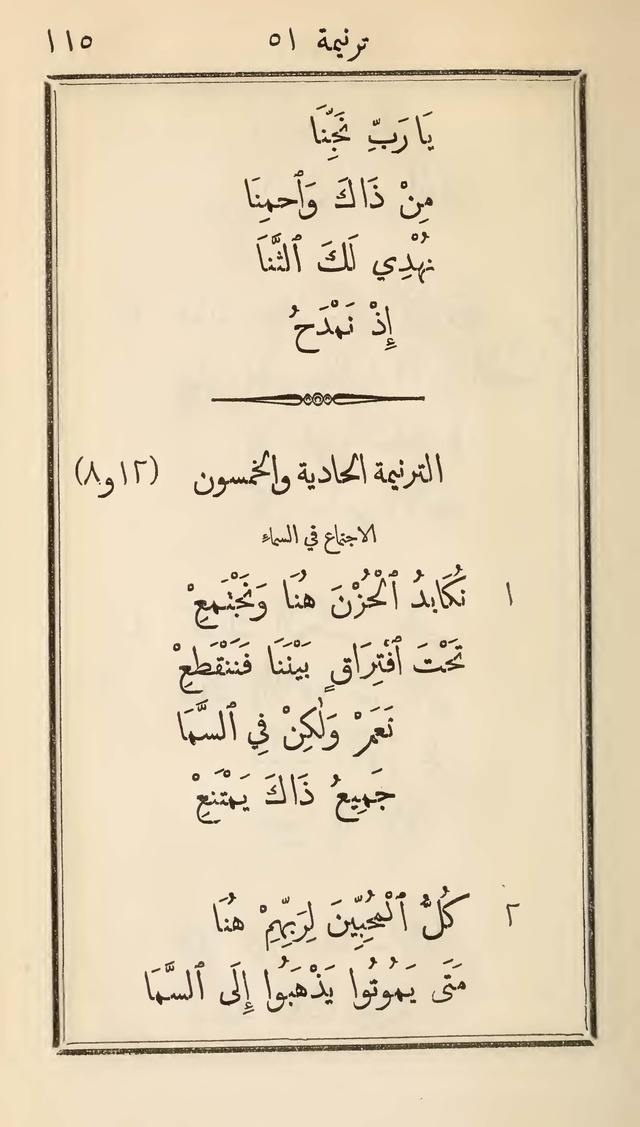 ترنيمة ٥١ ١١٥
يَا رَبِّ نَجِّنَا
مِنْ ذَاكَ وَٱحمِنَا
نُهْدِي لَكَ ٱلثَّنَا
إِذْ نَمْدَحُ
الترنيمة الحادية والخمسون (١٢ و٨)
الاجتماع في السماء
١ نُكَابِدُ ٱلْحُزْنَ هُنَا وَنَجْتَمِعْ
تَحْتَ ٱفْتِرَاقٍ بَيْنَنَا فَنَنْقَطِعْ
نَعَمْ وَلٰكِنْ فِي ٱلسَّمَا
جَمِيعُ ذَاكَ يَمْتَنِعْ
٢ كُلُّ ٱلْمُحِبِّينَ لِرَبِّهِمْ هُنَا
مَتَى يَمُوتُوا يَذْهَبُوا إِلَى ٱلسَّمَا